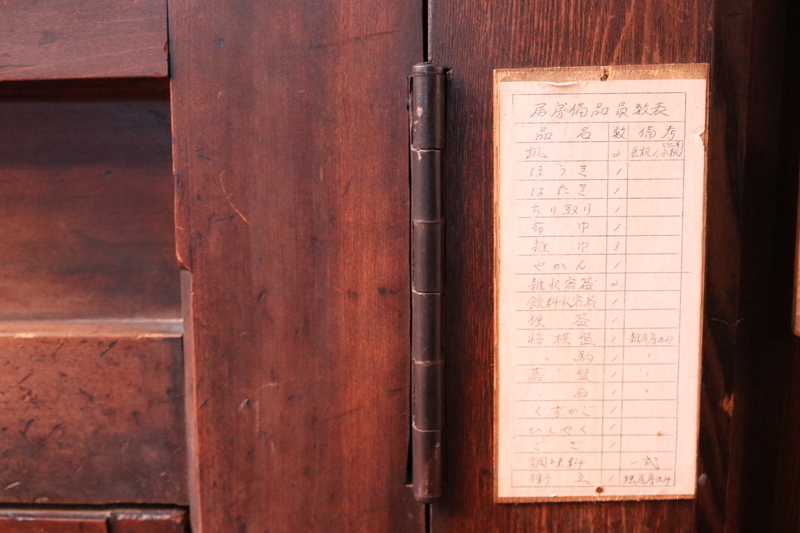 居房備品員数表
品名 数 備考
机 2
ほうき 1
はたき 1
ちり取り 1
布巾 1
雑巾 3
やかん 1
雑水容器 2
飲料水容器 1
便器 1
将棋盤 1 雑居房のみ
〃 駒 1 〃
碁盤 1 〃
〃 石 1 〃
くずかご 1
ひしゃく 1
ござ 1
調味料 一式
1 独居房のみ